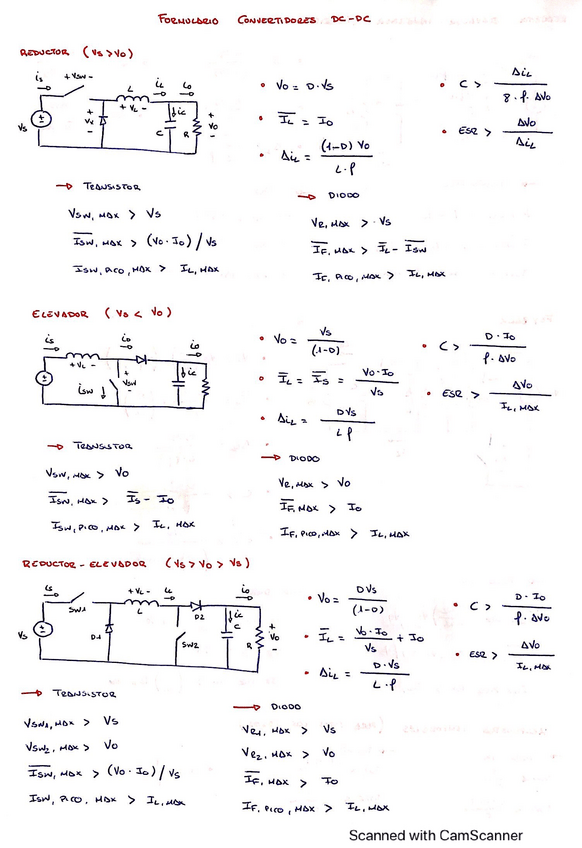 FORMULARIO CONVERTIDORES DC-DC
REDUCTOR (Vs > Vo)
is
+ Vsw -
L
iL
io
+ VL -
Vs
+
Vd
-
ic
C
R
+
Vo
-
• Vo = D·Vs
• IL = Io
• ΔiL = (1-D) Vo / L·f
• C > ΔiL / 8·f·ΔVo
• ESR > ΔVo / ΔiL
→ TRANSISTOR
Vsw, MAX > Vs
Isw, MAX > (Vo·Io) / Vs
Isw, PICO, MAX > IL, MAX
→ DIODO
VR, MAX > Vs
IF, MAX > IL - Isw
IF, PICO, MAX > IL, MAX
ELEVADOR (Vs < Vo)
is
io
io
+ VL -
isw
+
Vsw
-
ic
• Vo = Vs / (1-D)
• IL = Is = Vo·Io / Vs
• ΔiL = DVs / L f
• C > D·Io / f·ΔVo
• ESR > ΔVo / IL, MAX
→ TRANSISTOR
Vsw, MAX > Vo
Isw, MAX > Is - Io
Isw, PICO, MAX > IL, MAX
→ DIODO
VR, MAX > Vo
IF, MAX > Io
IF, PICO, MAX > IL, MAX
REDUCTOR-ELEVADOR (Vs > Vo > Vs)
is
SW1
+ VL -
L
iL
D2
io
Vs
D1
SW2
ic
C
R
+
Vo
-
• Vo = DVs / (1-D)
• IL = Vo·Io / Vs + Io
• ΔiL = D·Vs / L·f
• C > D·Io / f·ΔVo
• ESR > ΔVo / IL, MAX
→ TRANSISTOR
Vsw1, MAX > Vs
Vsw2, MAX > Vo
Isw, MAX > (Vo·Io) / Vs
Isw, PICO, MAX > IL, MAX
→ DIODO
VR1, MAX > Vs
VR2, MAX > Vo
IF, MAX > Io
IF, PICO, MAX > IL, MAX
Scanned with CamScanner